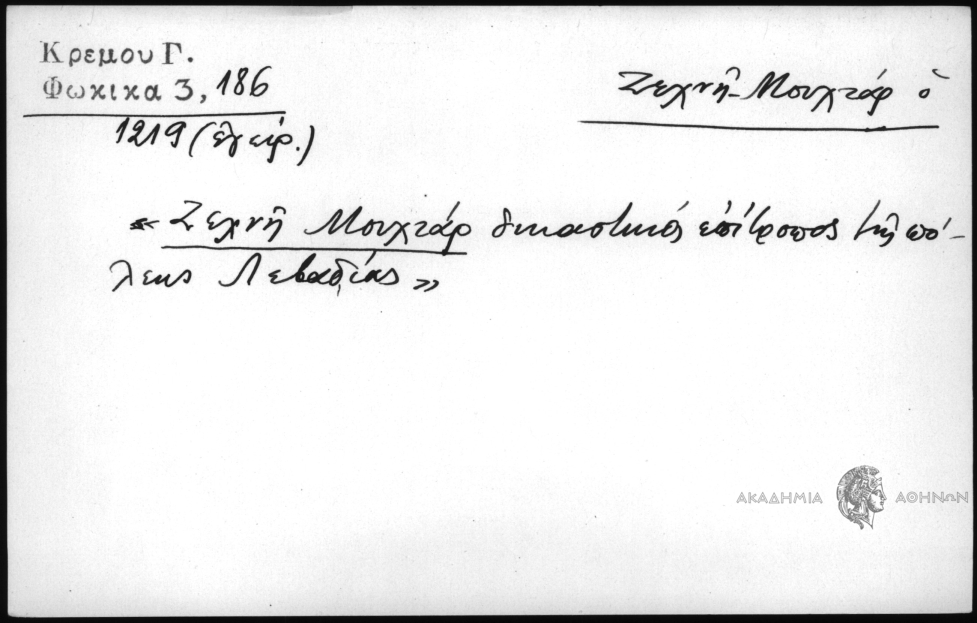 Κρεμου Γ.
Φωκικα 3, 186
Ζεχνῆ-Μουχτάρ ὁ
1219 (ἐγειρ.)
« Ζεχνῆ Μουχτάρ δικαστικός ἐπίτροπος τῆς πό-
λεως Λεβαδίας »
ΑΚΑΔΗΜΙΑ ΑΘΗΝΩΝ